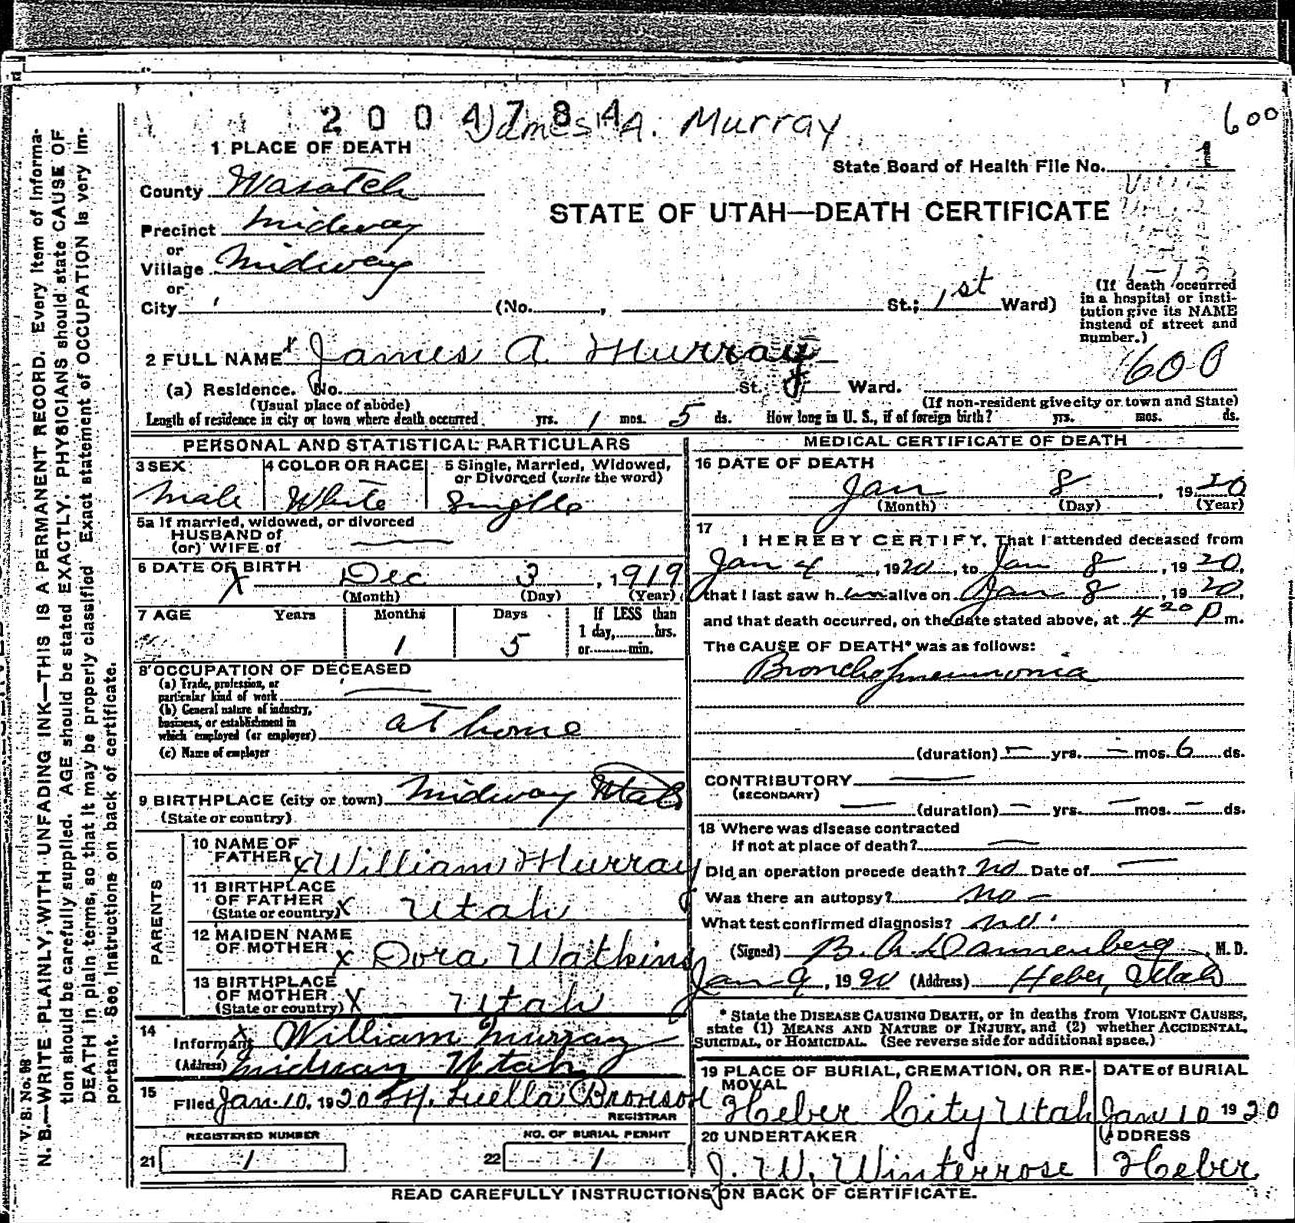 2004784 James A. Murray
600
1 PLACE OF DEATH
State Board of Health File No. 1
County Wasatch
STATE OF UTAH—DEATH CERTIFICATE
Precinct Midway
or
Village Midway
or
City (No. , St.; 1st Ward)
(If death occurred in a hospital or insti-
tution give its NAME
instead of street and
number.)
2 FULL NAME x James A Murray
600
(a) Residence. No. St. Ward.
(Usual place of abode) (If non-resident give city or town and State)
Length of residence in city or town where death occurred. yrs. 1 mos. 5 ds. How long in U. S., if of foreign birth? yrs. mos. ds.
PERSONAL AND STATISTICAL PARTICULARS
3 SEX
Male
4 COLOR OR RACE
White
5 Single, Married, Widowed,
or Divorced (write the word)
Single
5a If married, widowed, or divorced
HUSBAND of
(or) WIFE of —
6 DATE OF BIRTH
x Dec 3, 1919
(Month) (Day) (Year)
7 AGE Years Months Days If LESS than
1 day, hrs.
or min.
1 5
8 OCCUPATION OF DECEASED
(a) Trade, profession, or
particular kind of work —
(b) General nature of industry,
business, or establishment in
which employed (or employer) at home
(c) Name of employer
9 BIRTHPLACE (city or town) Midway Utah
(State or country)
PARENTS
10 NAME OF
FATHER x William Murray
11 BIRTHPLACE
OF FATHER
(State or country) x Utah
12 MAIDEN NAME
OF MOTHER x Dora Watkins
13 BIRTHPLACE
OF MOTHER
(State or country) x Utah
14
Informant x William Murray
(Address) Midway Utah
15
Filed Jan. 10, 1920 M. Luella Bronson
REGISTRAR
REGISTERED NUMBER
21 1
NO. OF BURIAL PERMIT
22 1
MEDICAL CERTIFICATE OF DEATH
16 DATE OF DEATH
Jan 8, 1920
(Month) (Day) (Year)
17
I HEREBY CERTIFY, That I attended deceased from
Jan 4, 1920, to Jan 8, 1920,
that I last saw him alive on Jan 8, 1920,
and that death occurred, on the date stated above, at 4 20 P m.
The CAUSE OF DEATH* was as follows:
Bronchopneumonia
(duration) — yrs. — mos. 6 ds.
CONTRIBUTORY —
(SECONDARY)
— (duration) — yrs. — mos. — ds.
18 Where was disease contracted
If not at place of death? —
Did an operation precede death? no Date of —
Was there an autopsy? no —
What test confirmed diagnosis?
(Signed) B. A. Dannenberg, M. D.
Jan 9, 1920 (Address) Heber, Utah
* State the DISEASE CAUSING DEATH, or in deaths from VIOLENT CAUSES,
state (1) MEANS AND NATURE OF INJURY, and (2) whether ACCIDENTAL,
SUICIDAL, or HOMICIDAL. (See reverse side for additional space.)
19 PLACE OF BURIAL, CREMATION, OR RE-
MOVAL
Heber City Utah
DATE of BURIAL
Jan 10 1920
20 UNDERTAKER
J. W. Winterrose
ADDRESS
Heber
READ CAREFULLY INSTRUCTIONS ON BACK OF CERTIFICATE.
V. S. No. 98
N. B.—WRITE PLAINLY, WITH UNFADING INK—THIS IS A PERMANENT RECORD. Every item of informa-
tion should be carefully supplied. AGE should be stated EXACTLY. PHYSICIANS should state CAUSE OF
DEATH in plain terms, so that it may be properly classified. Exact statement of OCCUPATION is very im-
portant. See instructions on back of certificate.